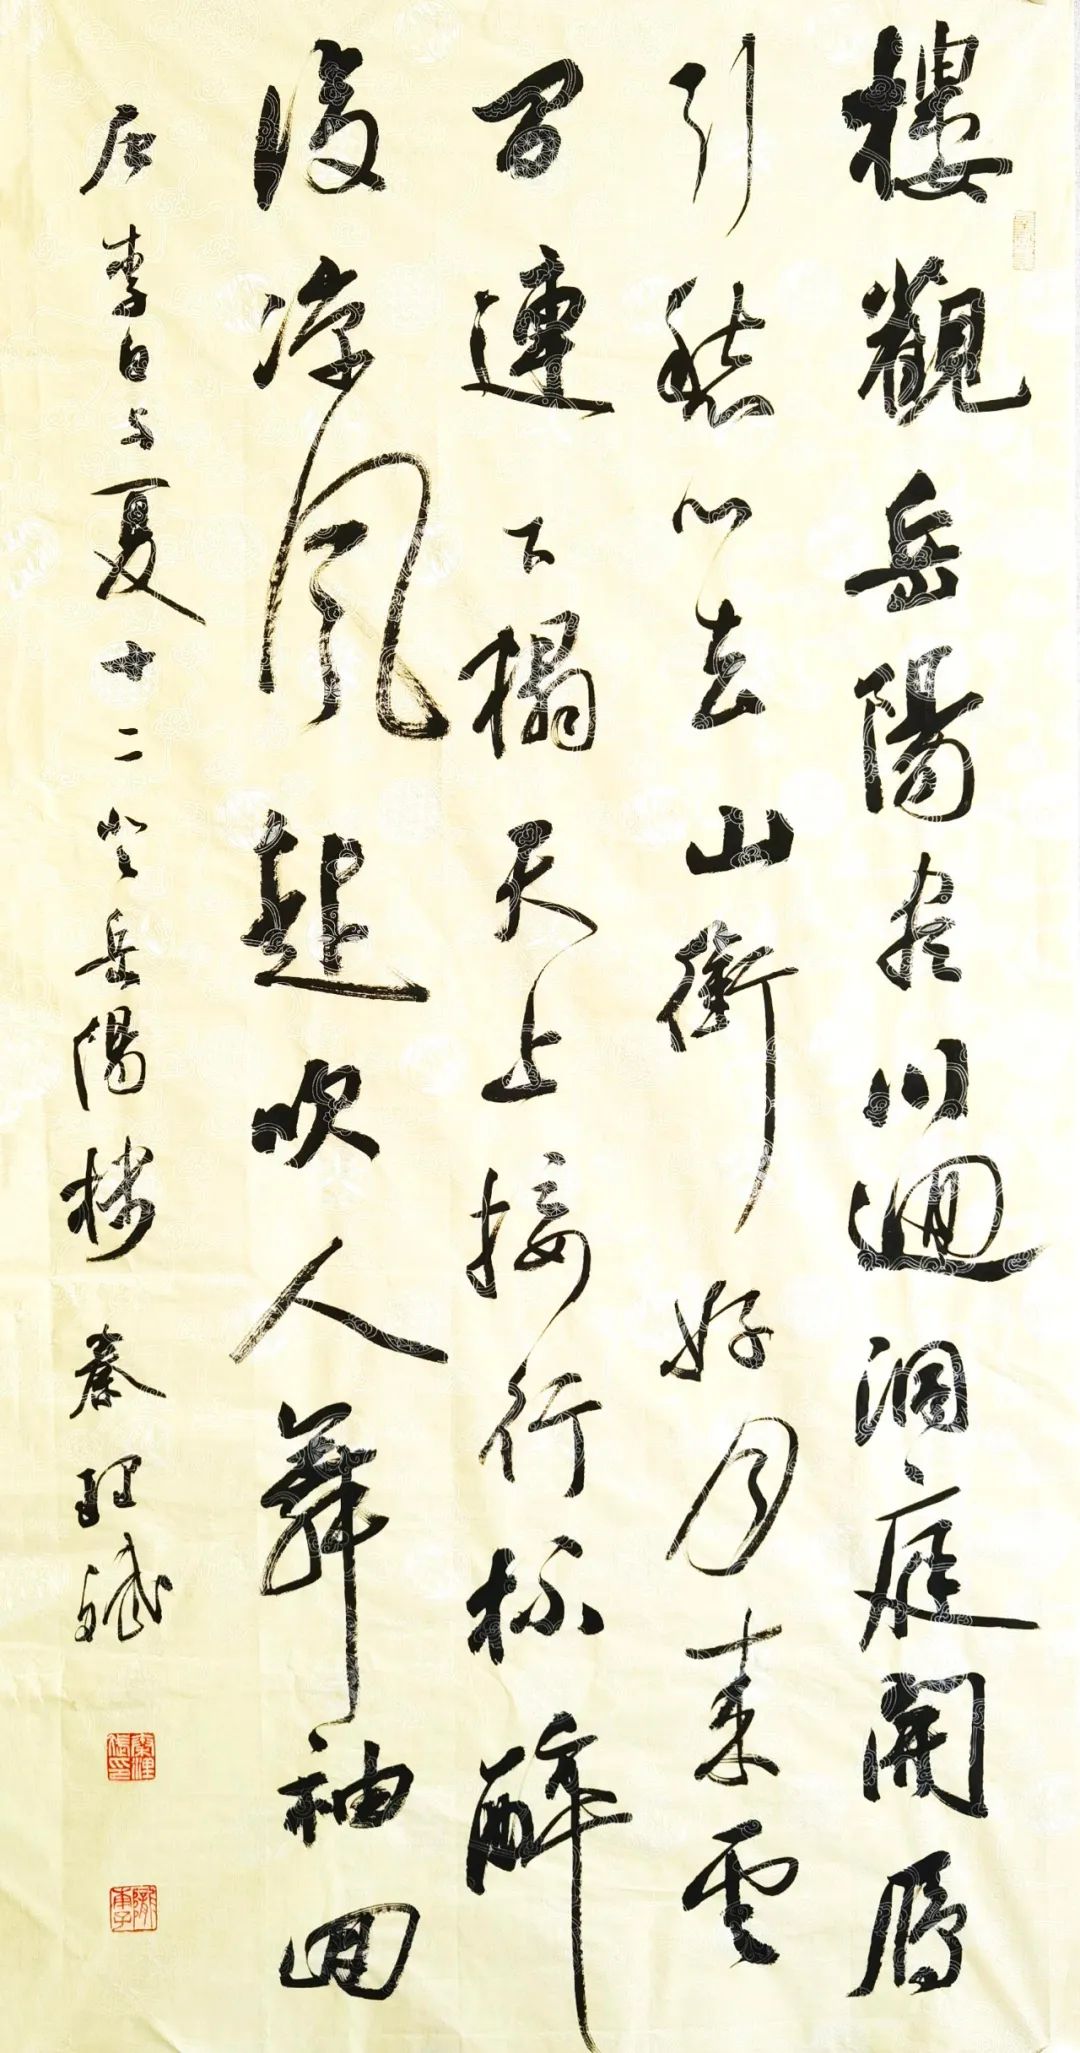 樓觀岳陽尽川迥洞庭開鴈
引愁心去山銜好月来雲
間連下榻天上接行杯醉
後凉風起吹人舞袖回
唐李白与夏十二登岳陽楼 秦理斌